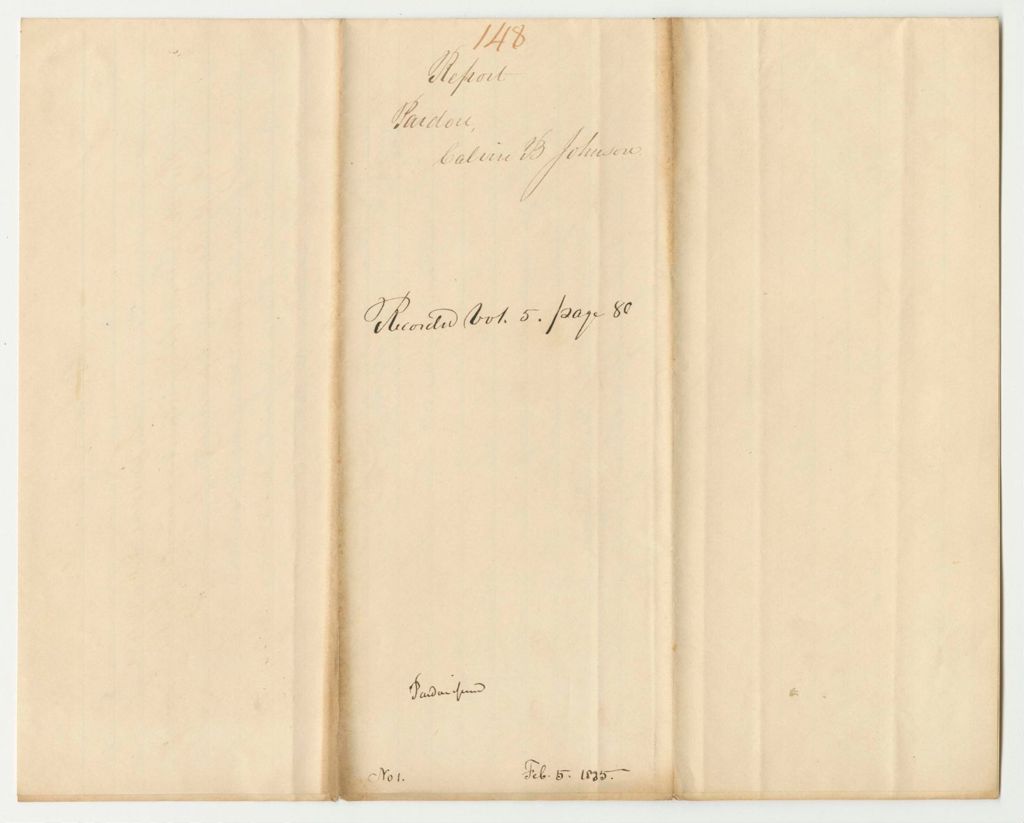 148
Report
Pardon,
Calvin B Johnson
Recorded Vol. 5. page 80
Pardon issued
No 1. Feb. 5. 1835.